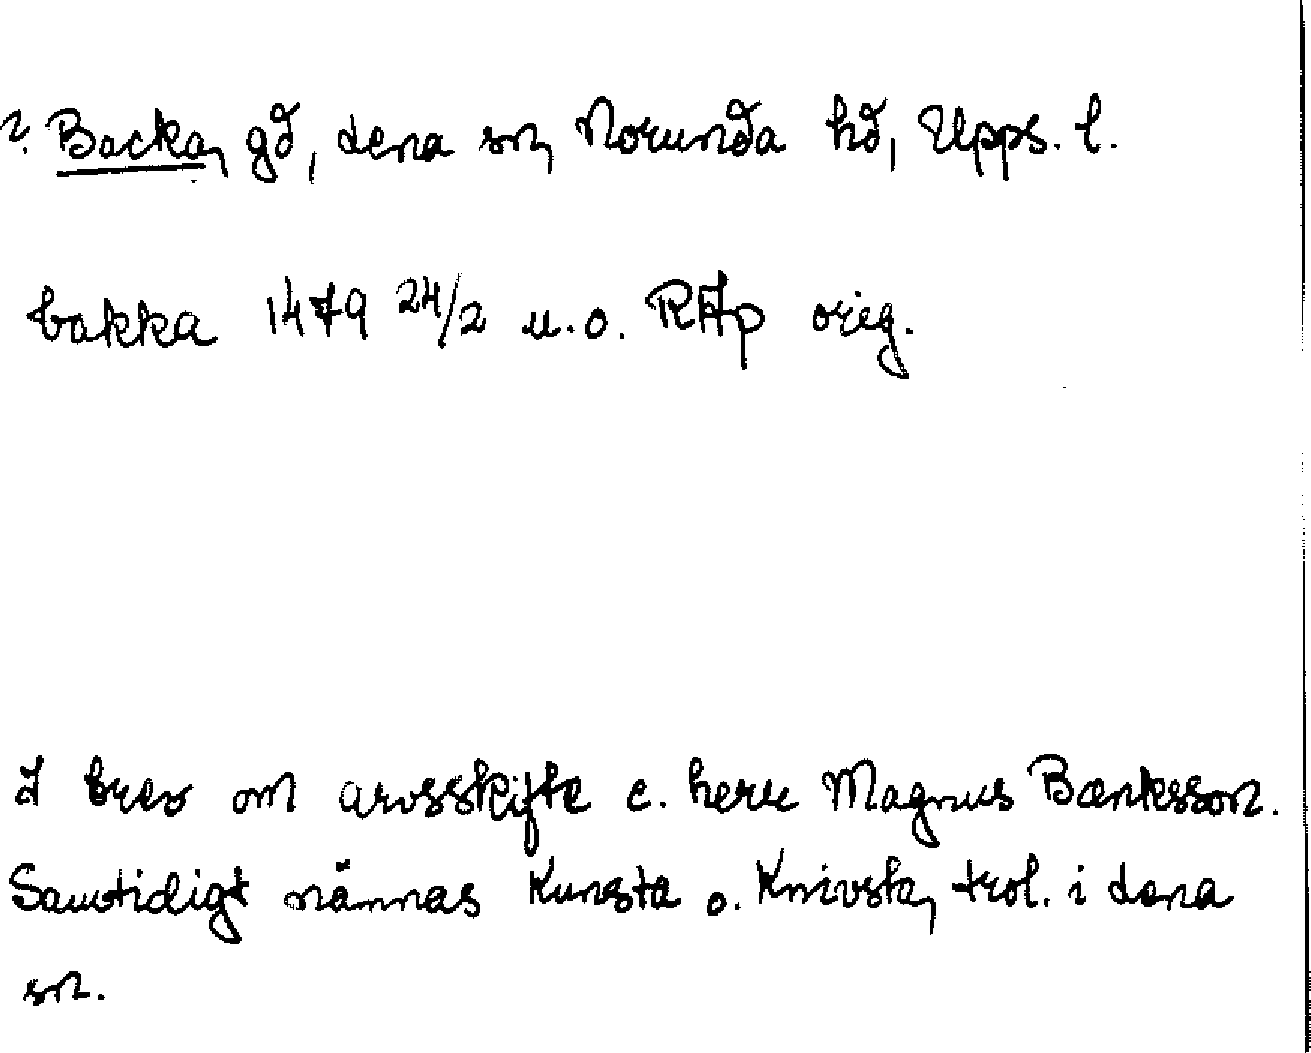 ? Backa, gd, Lena sn, Norunda hd, Upps. l.
bakka 1479 24/2 u.o. RAp orig.
I brev om arvsskifte e. herr Magnus Bænksson.
Samtidigt nämnas Kunsta o. Knivsta, trol. i Lena
sn.